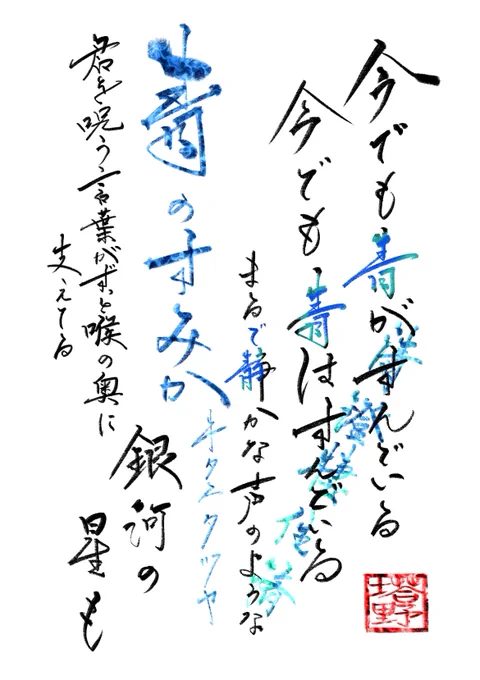 今でも青がすんでいる
今でも青はすんでいる
まるで静かな声のような
青のすみか
キタニタツヤ
君を呪う言葉がずっと喉の奥に
支えてる
銀河の
星も
塔野